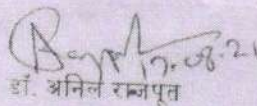 17.08.21
डॉ. अनिल राजपूत